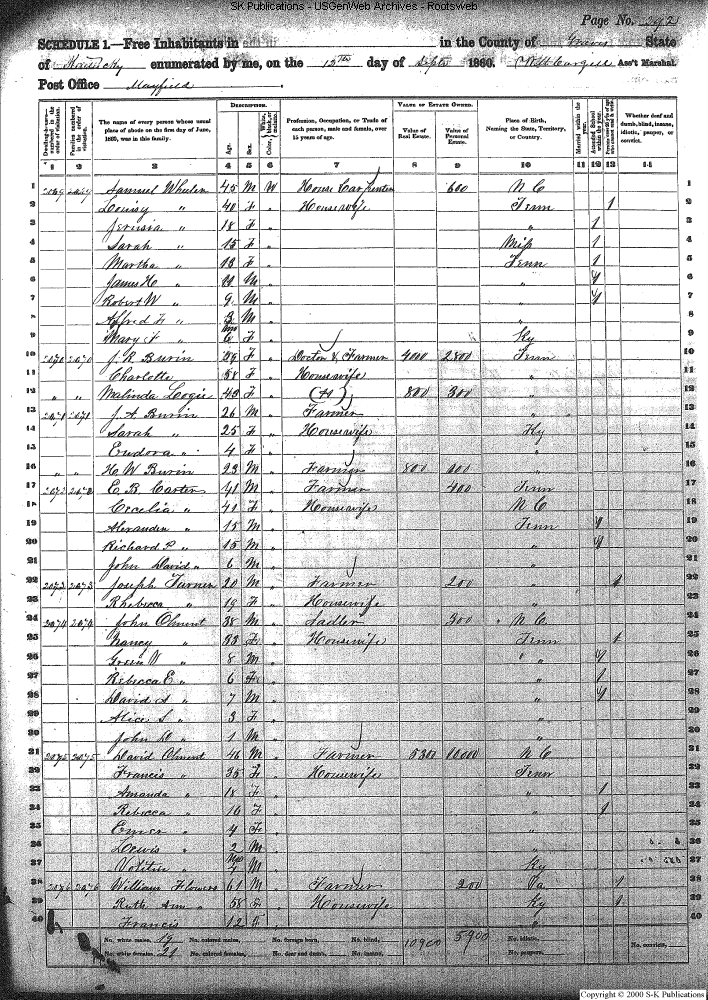 SK Publications - USGenWeb Archives - Rootsweb
Page No.
SCHEDULE 1.—Free Inhabitants in in the County of Graves State
of Kentucky enumerated by me, on the 12th day of Septr 1860. Ass't Marshal.
Post Office Mayfield
Dwelling-houses numbered in the order of visitation.
Families numbered in the order of visitation.
The name of every person whose usual place of abode on the first day of June, 1860, was in this family.
DESCRIPTION.
Age.
Sex.
Color, White, black, or mulatto.
Profession, Occupation, or Trade of each person, male and female, over 15 years of age.
VALUE OF ESTATE OWNED.
Value of Real Estate.
Value of Personal Estate.
Place of Birth, Naming the State, Territory, or Country.
Married within the year.
Attended School within the year.
Whether deaf and dumb, blind, insane, idiotic, pauper, or convict.
1 2 3 4 5 6 7 8 9 10 11 12 13 14
1 2069 2069 Samuel Wheelen 45 M W House Carpenter 600 N C 1
2 Louisy " 40 F " Housewife Tenn 1 2
3 Jerusia " 18 F " " 1 3
4 Sarah " 15 F " Miss 1 4
5 Martha " 13 F " Tenn 1 5
6 James H " 11 M " " 6
7 Robert W " 9 M " " 7
8 Alfred F " 3 M " " 8
9 Mary F " 6 F " Ky 9
10 2070 2070 J. R. Burin 59 F " Doctor & Farmer 4000 2800 Tenn 10
11 Charlotte 58 F " Housewife " 11
12 " " Malinda Logie 43 F " 800 300 " 12
13 2071 2071 J. A. Burin 26 M " Farmer " 13
14 Sarah " 25 F " Housewife Ky 14
15 Eudora " 4 F " " 15
16 " " H. W. Burin 23 M " Farmer 800 " 16
17 2072 2072 E. B. Carter 41 M " Farmer 400 Tenn 17
18 Cecelia " 41 F " Housewife N C 18
19 Alexander " 15 M " Tenn 19
20 Richard P " 15 M " " 20
21 John David " 6 M " " 21
22 2073 2073 Joseph Turner 20 M " Farmer 200 " 1 22
23 Rhebecca " 19 F " Housewife " 23
24 2074 2074 John Olment 38 M " Sadler 300 " N C 24
25 Nancy " 33 F " Housewife Tenn 1 25
26 Green W " 8 M " " 26
27 Rebecca E " 6 F " " 1 27
28 David A " 7 M " " 28
29 Alice S " 3 F " " 29
30 John D " 1 M " " 30
31 2075 2075 David Olment 46 M " Farmer 5300 10000 N C 31
32 Francis " 35 F " Housewife Tenn 32
33 Amanda " 18 F " " 1 33
34 Rebecca " 16 F " " 1 34
35 4 F " " 35
36 Lewis " 2 M " " 36
37 M " Ky 37
38 2076 2076 William Flowers 61 M " Farmer 200 Va 1 38
39 Ruth Ann " 58 F " Housewife Ky 1 39
40 Francis " 12 F " " 40
No. white males, 19 No. colored males, No. foreign born, No. blind, 10900 5900 No. idiotic, No. convicts,
No. white females, 21 No. colored females, No. deaf and dumb, No. insane, No. paupers,
Copyright © 2000 S-K Publications